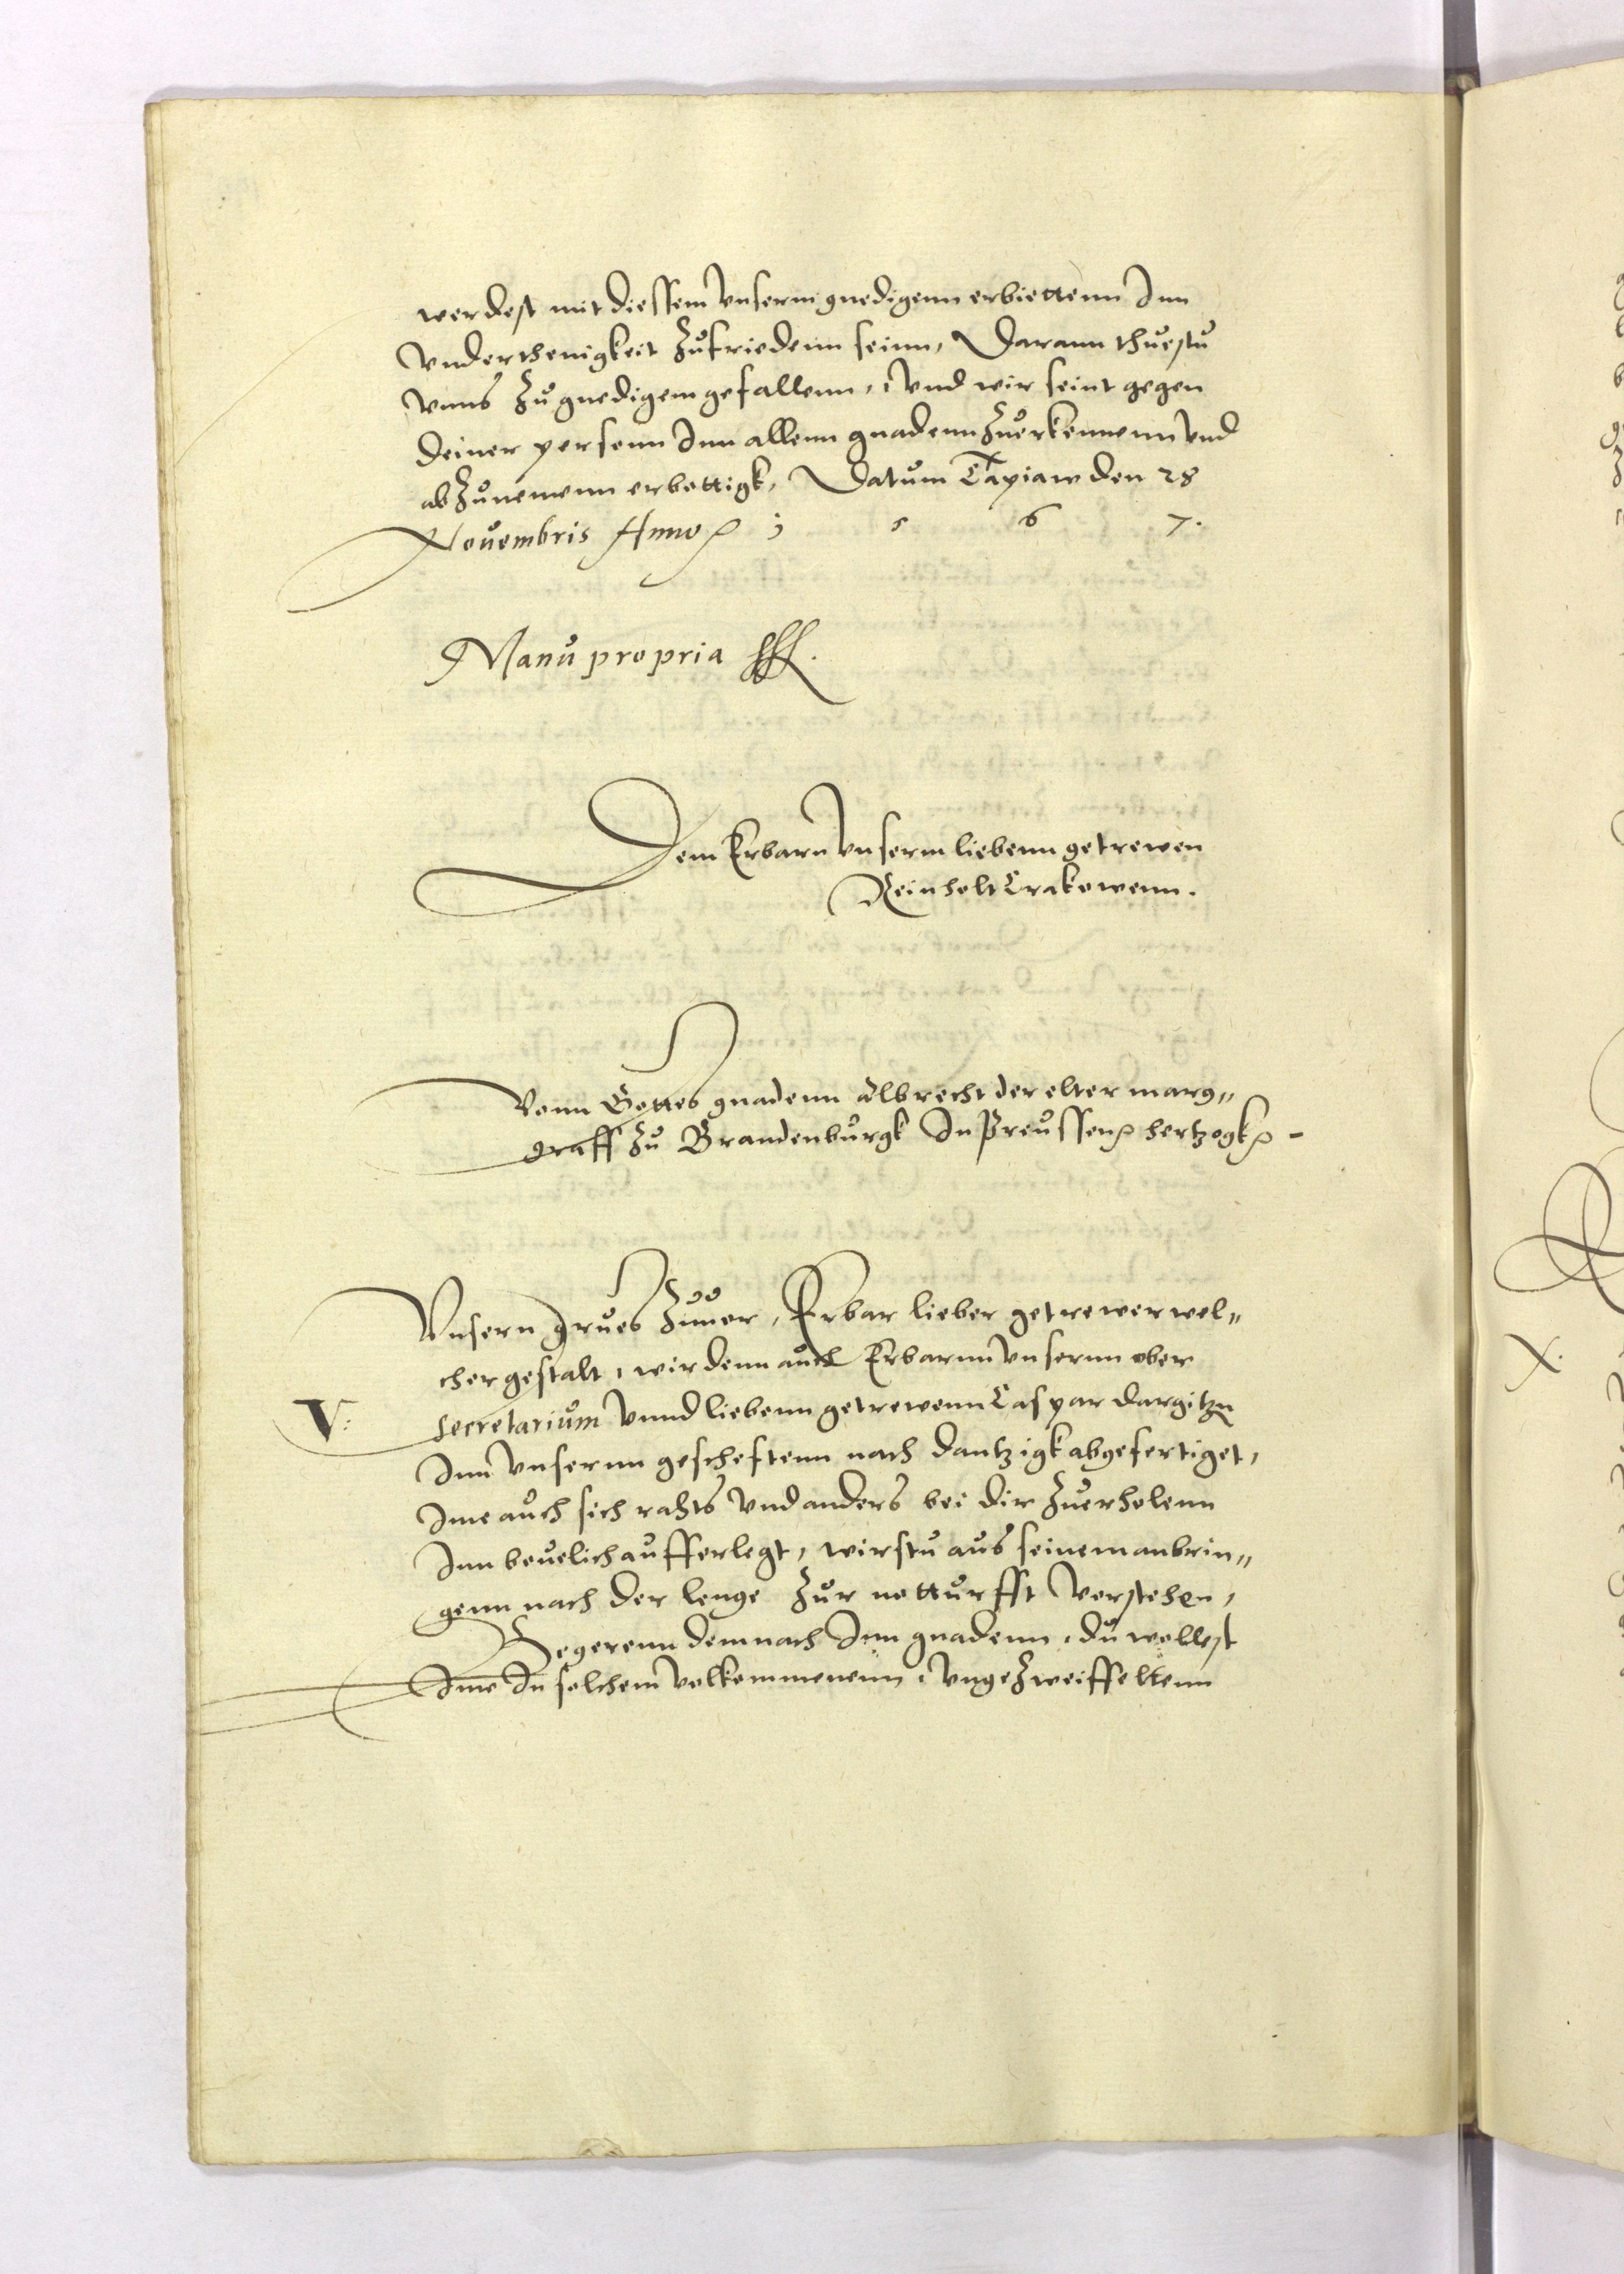 werdest mit diessem Vnserm gnedigenn erbiettenn Inn
Vnderthenigkeit Zufriedenn seinn, Darann thuestu
Vnns Zu gnedigem gefallenn, Vnd wir seint gegen
deiner personn Inn allenn gnadenn Zuerkennenn Vnd
abZunemenn erbottigk, Datum Tapiaw den 28
Nouembris Anno 1 5 6 7.
Manu propria
Dem Erbarn Vnserm liebenn getrewen
Reinholt Crakowenn.
Vonn Gottes gnadenn Albrecht der elter marg„
graff Zu Brandenburgk In Preussen hertzogk
Vnsern grues Zuuor, Erbar lieber getrewer wel„
cher gestalt, wir denn auch Erbarnn Vnsernn ober
V:
Secretarium Vnnd liebenn getrewenn Caspar Dargitzn
Inn Vnsernn gescheftenn nach Dantzigk abgefertiget,
Ime auch sich rahts Vnd anders bei dir Zuerholenn
Inn beuelich aufferlegt, wirstu aus seinem anbrin„
genn nach der lenge Zur notturfft Verstehen,
Begerenn demnach Inn gnadenn, du wollest
Ime In solchem Volkommenenn, VngeZweiffeltenn